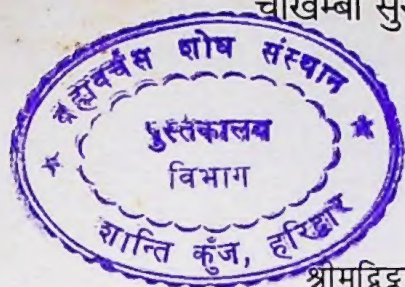 चौखम्बा
ब्रह्मवर्चस शोध संस्थान
पुस्तकालय
विभाग
शान्ति कुँज, हरिद्वार